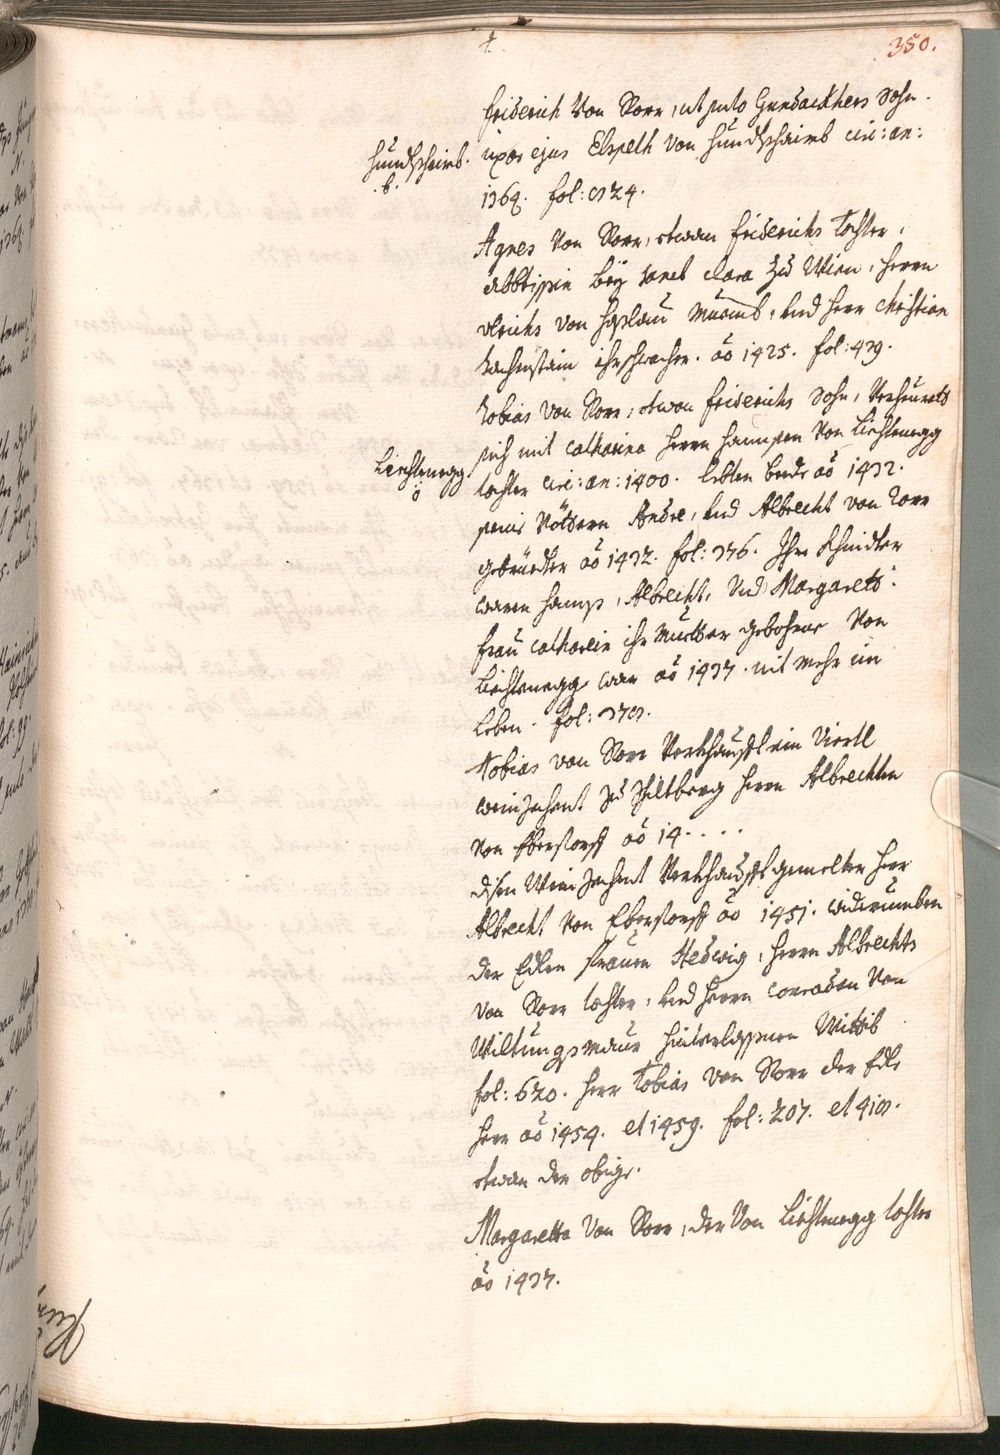 350.
Friderich Von Rorr, ut puto Gundackhers Sohn.
Hundtshaimb. uxor ejus Elspeth von Hundtshaimb circ: an:
.b. 1369. fol: 524.
Agnes Von Rorr, etwan Friderichs Tochter,
Abbtissin beÿ Sanct Clara Zu Wien, Herrn
Ulrichs von Haslau Muamb, und Herr Christian
Rachenstain ihr schwacher. ao 1425. fol: 439.
Tobias Von Rorr, etwan Friderichs Sohn, Verheurath
sich mit Catharina Herrn Hannsen Von Liechtenegg
Liechtenegg Tochter circ: an: 1400. lebten beede ao 1432.
seine Vöttern Andre, und Albrecht von Rorr
gebrüeder ao 1432. fol: 376. Ihre Khinder
waren Hanns, Albrecht, Und Margareth.
Frau Catharein ihr Mutter gebohrne Von
Liechtenegg war ao 1437. nit mehr im
Leben. fol:
Tobias von Rorr Verkhaufft ein Viertl
weinzehent zu Schiltberg Herrn Albrechten
Von Eberstorff ao 14....
disen Wein zehent Verkhaufft gemelter Herr
Albrecht Von Eberstorff ao 1451. widerumben
der Edlen Frauen Hedwig, Herrn Albrechts
Von Rorr Tochter, und Herrn Conraden Von
Wiltungsmaur hinterlassnen Wittib
fol: 620. Herr Tobias Von Rorr der Edle
Herr ao 1454. et 1459. fol: 207. et
etwan der obige.
Margaretha Von Rorr, der Von Liechtenegg Tochter
ao 1437.